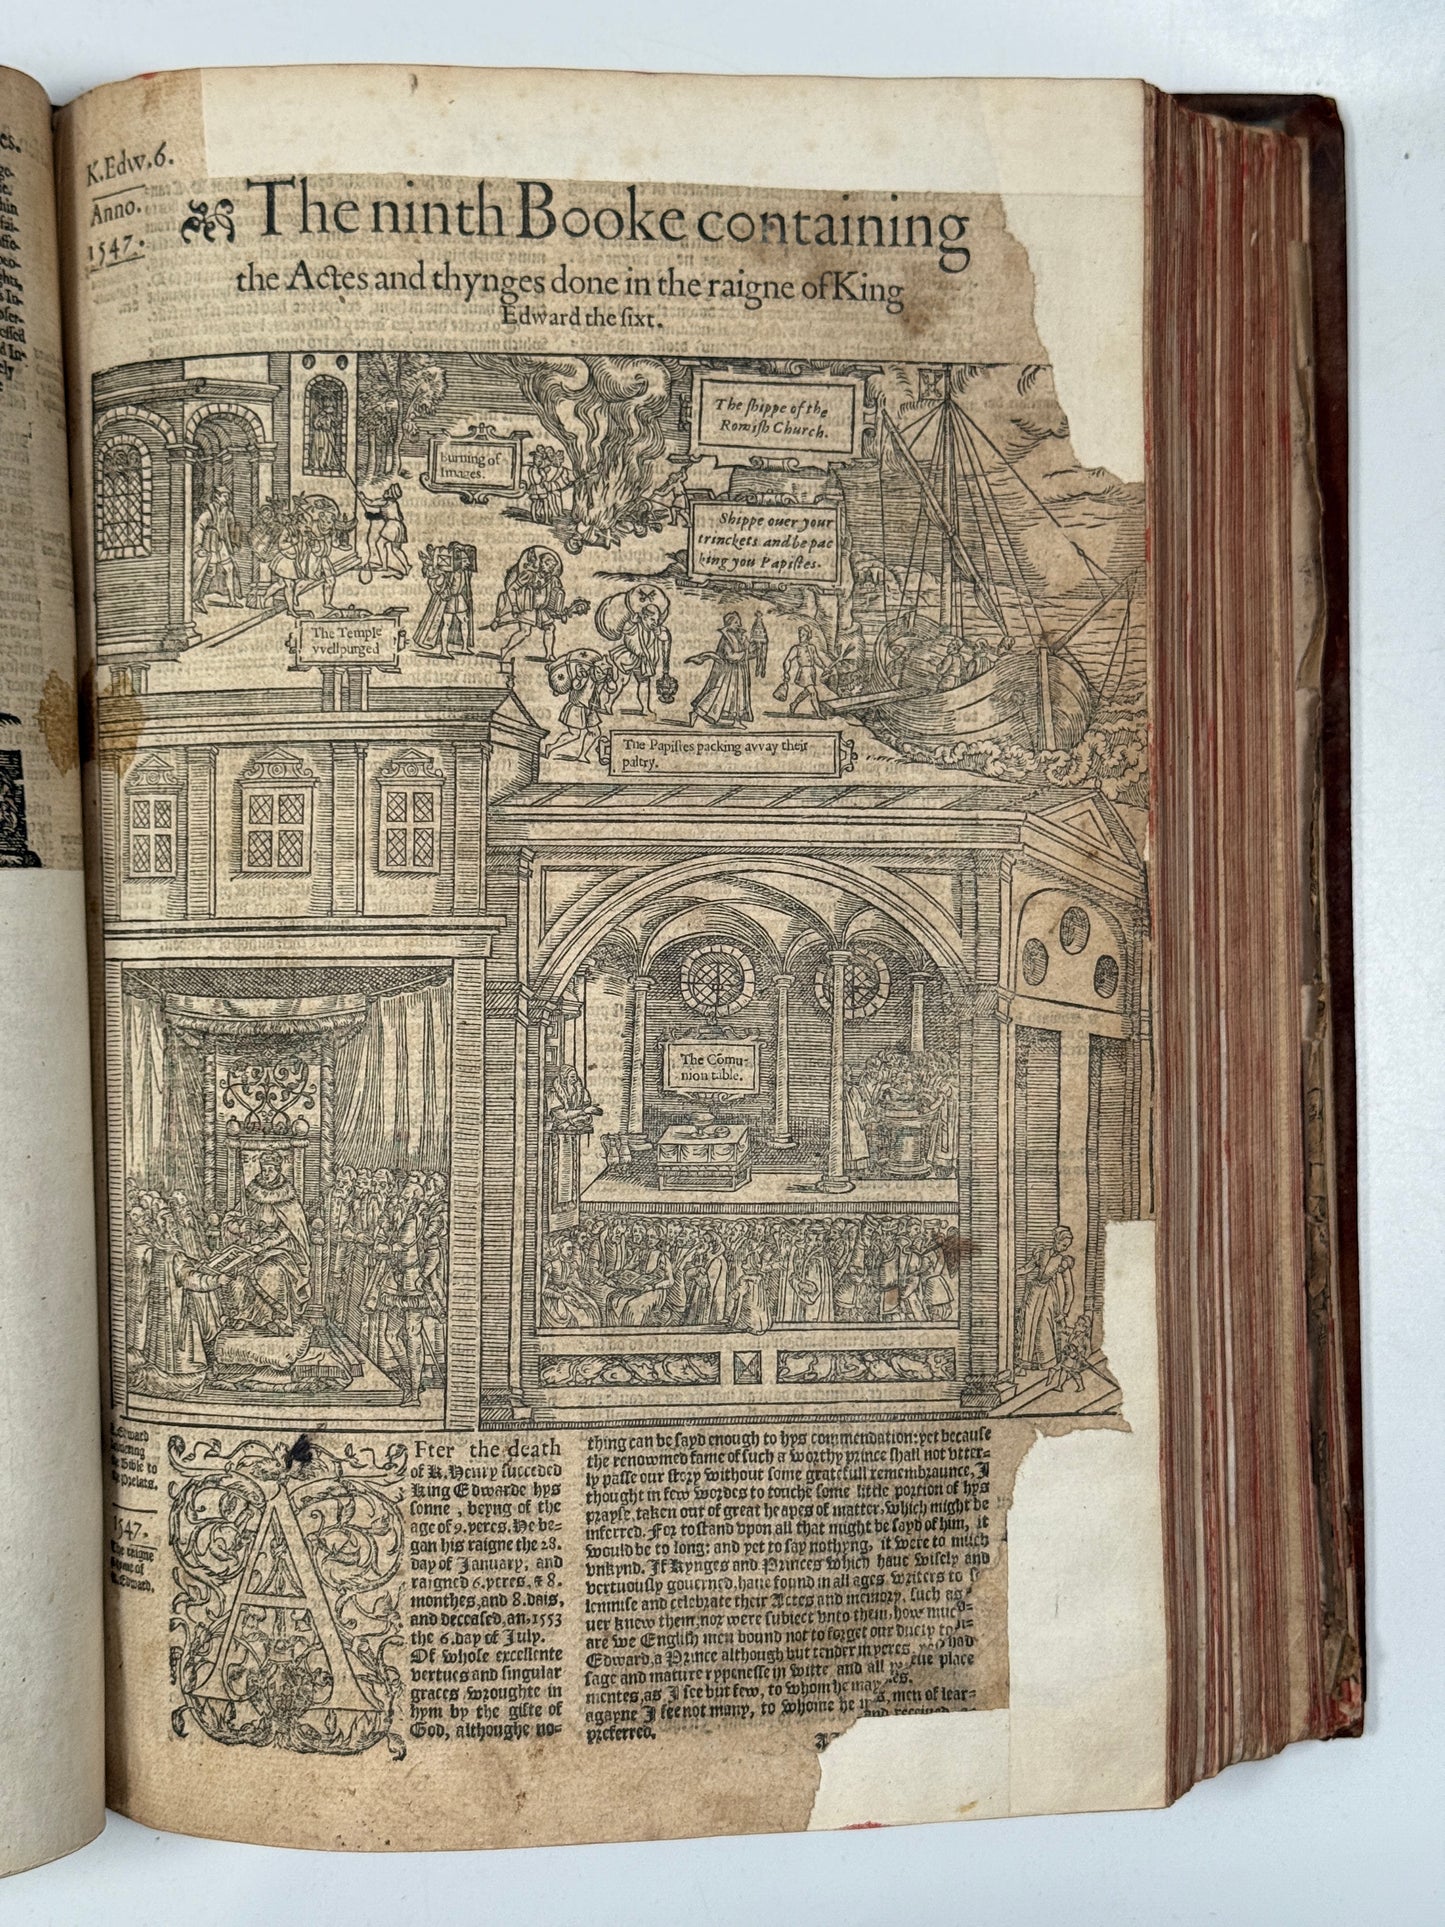 K.Edw.6.
Anno.
1547.
The ninth Booke containing
the Actes and thynges done in the raigne of King
Edward the sixt.
The shippe of the
Romish Church.
Burning of
Images.
Shippe ouer your
trinckets and be pac
king you Papistes.
The Temple
vvell purged
The Papistes packing avvay their
paltry.
The Cõmu-
nion table.
K. Edward
the Bible to
the Prelats.
1547.
The raigne
of
K. Edward.
AFter the death
of K. Henry succeded
King Edwarde hys
sonne, beyng of the
age of 9. yeres. He be=
gan his raigne the 28.
day of January, and
raigned 6. yeres, & 8.
monthes, and 8. dais,
and deceased, an. 1553
the 6. day of July.
Of whose excellente
vertues and singular
graces wroughte in
hym by the gifte of
God, althoughe no=
thing can be sayd enough to hys commendation: yet because
the renowmed fame of such a worthy prince shall not vtter=
ly passe our story without some gratefull remembraunce, I
thought in few wordes to touche some little portion of hys
prayse, taken out of great heapes of matter, which might be
inferred. For to stand vpon all that might be sayd of him, it
would be to long: and yet to say nothyng, it were to much
vnkynd. If Kynges and Princes which haue wisely and
vertuously gouerned, haue found in all ages writers to
lemnise and celebrate their Actes and memory, such as
uer knew them, nor were subiect vnto them, how much
are we English men bound not to forget our duety to
Edward, a Prince although but tender in yeres, yet had
sage and mature rypenesse in witte and all place
mentes, as I see but few, to whom he may
agayne I see not many, to whome he men of lear=
preferred. and receiued